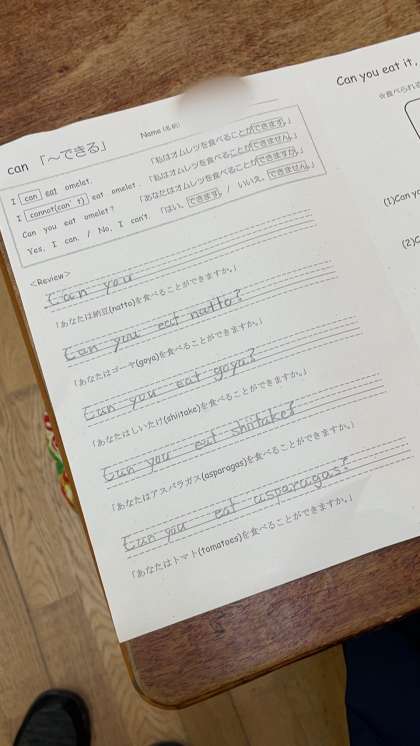 can 「～できる」
Name (名前)
I can eat omelet. 「私はオムレツを食べることができます。」
I cannot(can't) eat omelet. 「私はオムレツを食べることができません。」
Can you eat omelet? 「あなたはオムレツを食べることができますか。」
Yes, I can. / No, I can't. 「はい、できます。 / いいえ、できません。」
<Review>
Can you
「あなたは納豆(natto)を食べることができますか。」
Can you eat natto?
「あなたはゴーヤ(goya)を食べることができますか。」
Can you eat goya?
「あなたはしいたけ(shiitake)を食べることができますか。」
Can you eat shiitake?
「あなたはアスパラガス(asparagas)を食べることができますか。」
Can you eat asparagas?
「あなたはトマト(tomatoes)を食べることができますか。」
Can you eat it,
☆食べられる
(1)Can yo
(2)C